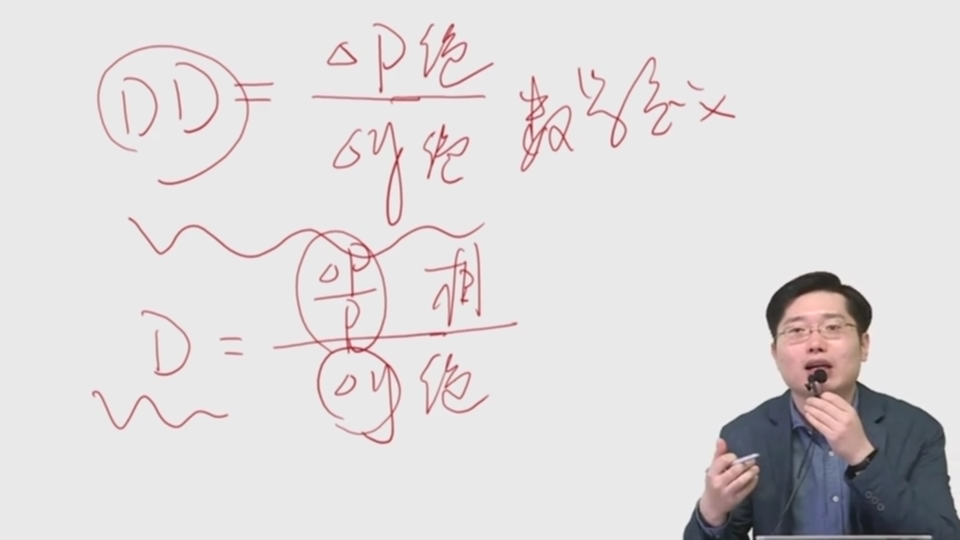 DD = ΔP绝 / Δy绝 数学含义
D = ΔP/P 相 / Δy 绝